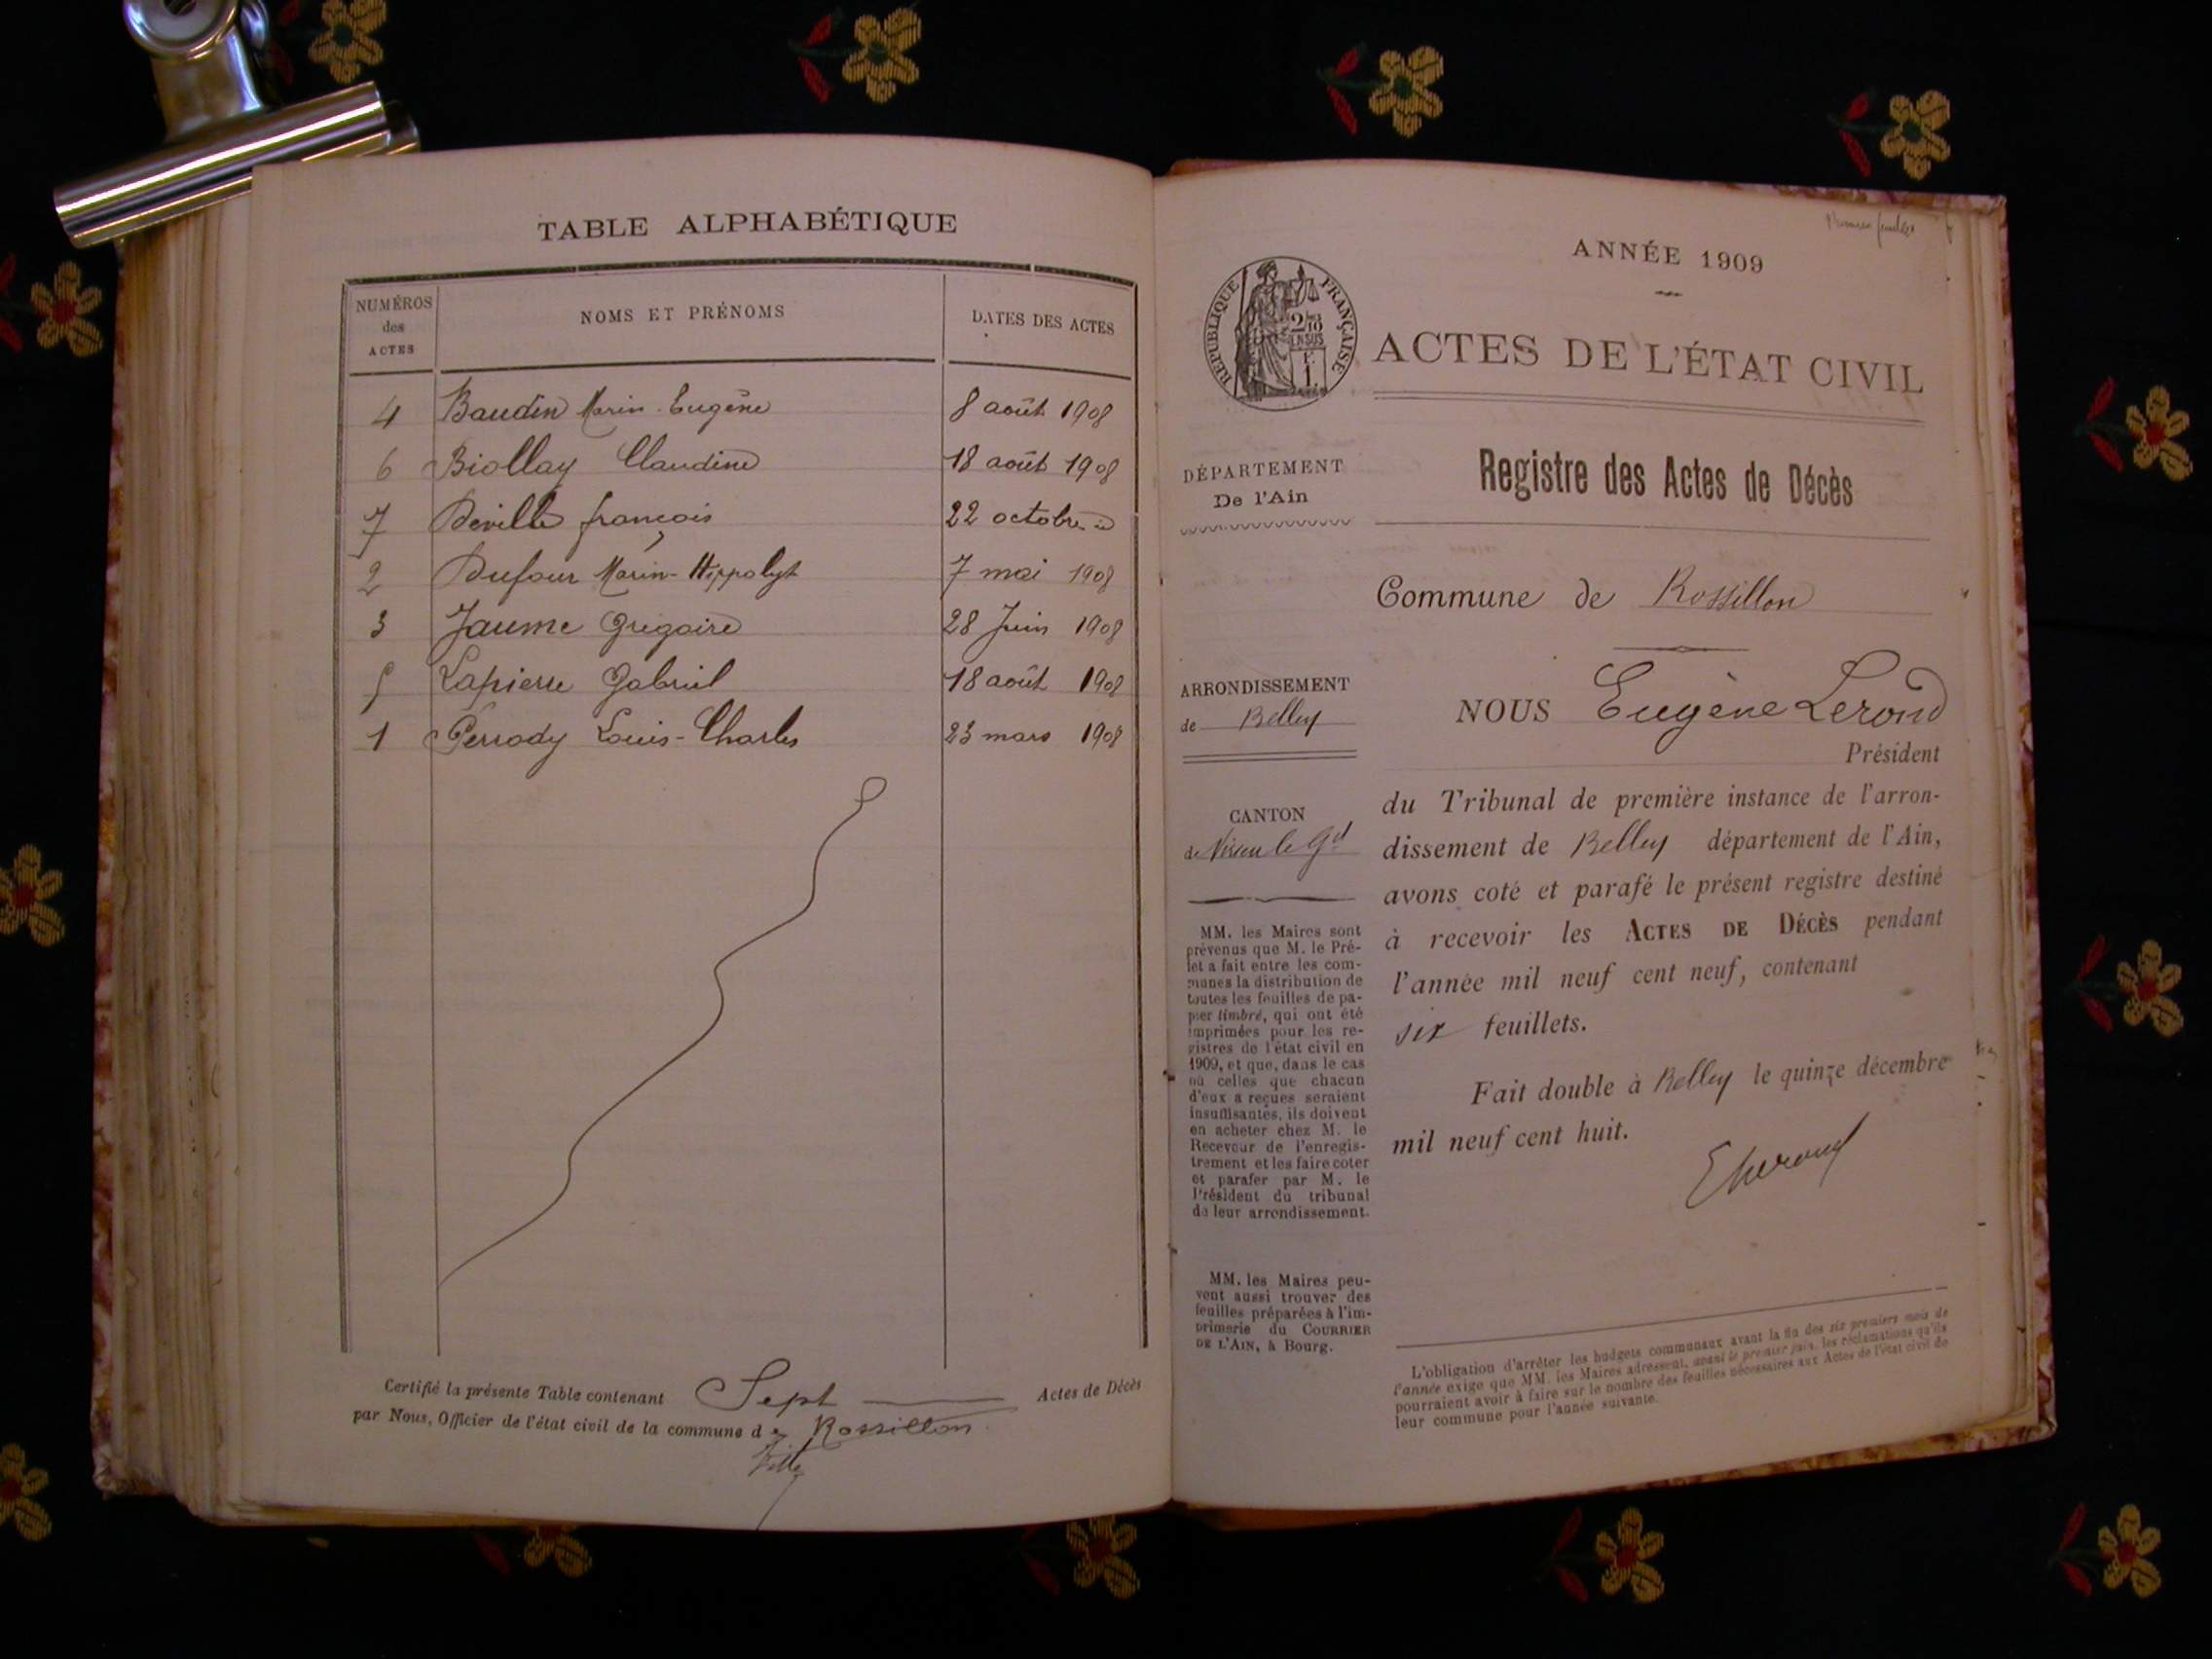 TABLE ALPHABÉTIQUE
NUMÉROS
des
ACTES
NOMS ET PRÉNOMS
DATES DES ACTES
4 Baudin Marin-Eugène 8 août 1908
6 Biollay Claudine 18 août 1908
7 Deville françois 22 octobre id
2 Dufour Marin-Hippolyt 7 mai 1908
3 Jaume Grégoire 28 Juin 1908
5 Lapierre Gabriel 18 août 1908
1 Perrody Louis-Charles 23 mars 1908
Certifié la présente Table contenant Sept Actes de Décès
par Nous, Officier de l'état civil de la commune de Rossillon
ANNÉE 1909
RÉPUBLIQUE FRANÇAISE
2/10
EN SUS
ACTES DE L'ÉTAT CIVIL
DÉPARTEMENT
De l'Ain
Registre des Actes de Décès
Commune de Rossillon
ARRONDISSEMENT
de Belley
CANTON
de Virieu le Gd
MM. les Maires sont
prévenus que M. le Pré-
fet a fait entre les com-
munes la distribution de
toutes les feuilles de pa-
pier timbré, qui ont été
imprimées pour les re-
gistres de l'état civil en
1909, et que, dans le cas
où celles que chacun
d'eux a reçues seraient
insuffisantes, ils doivent
en acheter chez M. le
Receveur de l'enregis-
trement et les faire coter
et parafer par M. le
Président du tribunal
de leur arrondissement.
MM. les Maires peu-
vent aussi trouver des
feuilles préparées à l'im-
primerie du COURRIER
DE L'AIN, à Bourg.
NOUS Eugène Lerond
Président
du Tribunal de première instance de l'arron-
dissement de Belley département de l'Ain,
avons coté et parafé le présent registre destiné
à recevoir les ACTES DE DÉCÈS pendant
l'année mil neuf cent neuf, contenant
six feuillets.
Fait double à Belley le quinze décembre
mil neuf cent huit.
L'obligation d'arrêter les budgets communaux avant la fin des six premiers mois de
l'année exige que MM. les Maires adressent, avant le premier juin, les réclamations qu'ils
pourraient avoir à faire sur le nombre des feuilles nécessaires aux Actes de l'état civil de
leur commune pour l'année suivante.